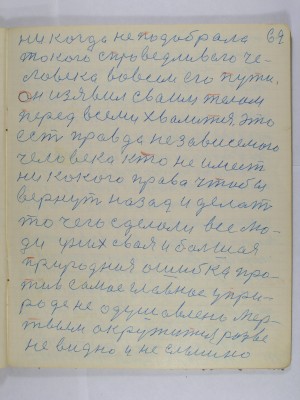 69
ни когда не подобрала
токого справедливого че-
ловека вовсем его пути.
он изявил своим телом
перед всеми хвалится это
ест правда независемого
человека кто не имеет
ни кокого права чтобы
вернут назад и делат
то чего сделали все лю-
ди у них своя и болшая
природная ошибка про-
тив самое главное у при-
роде не одушовлено мер-
твыем окружится разве
не видно и не слышно